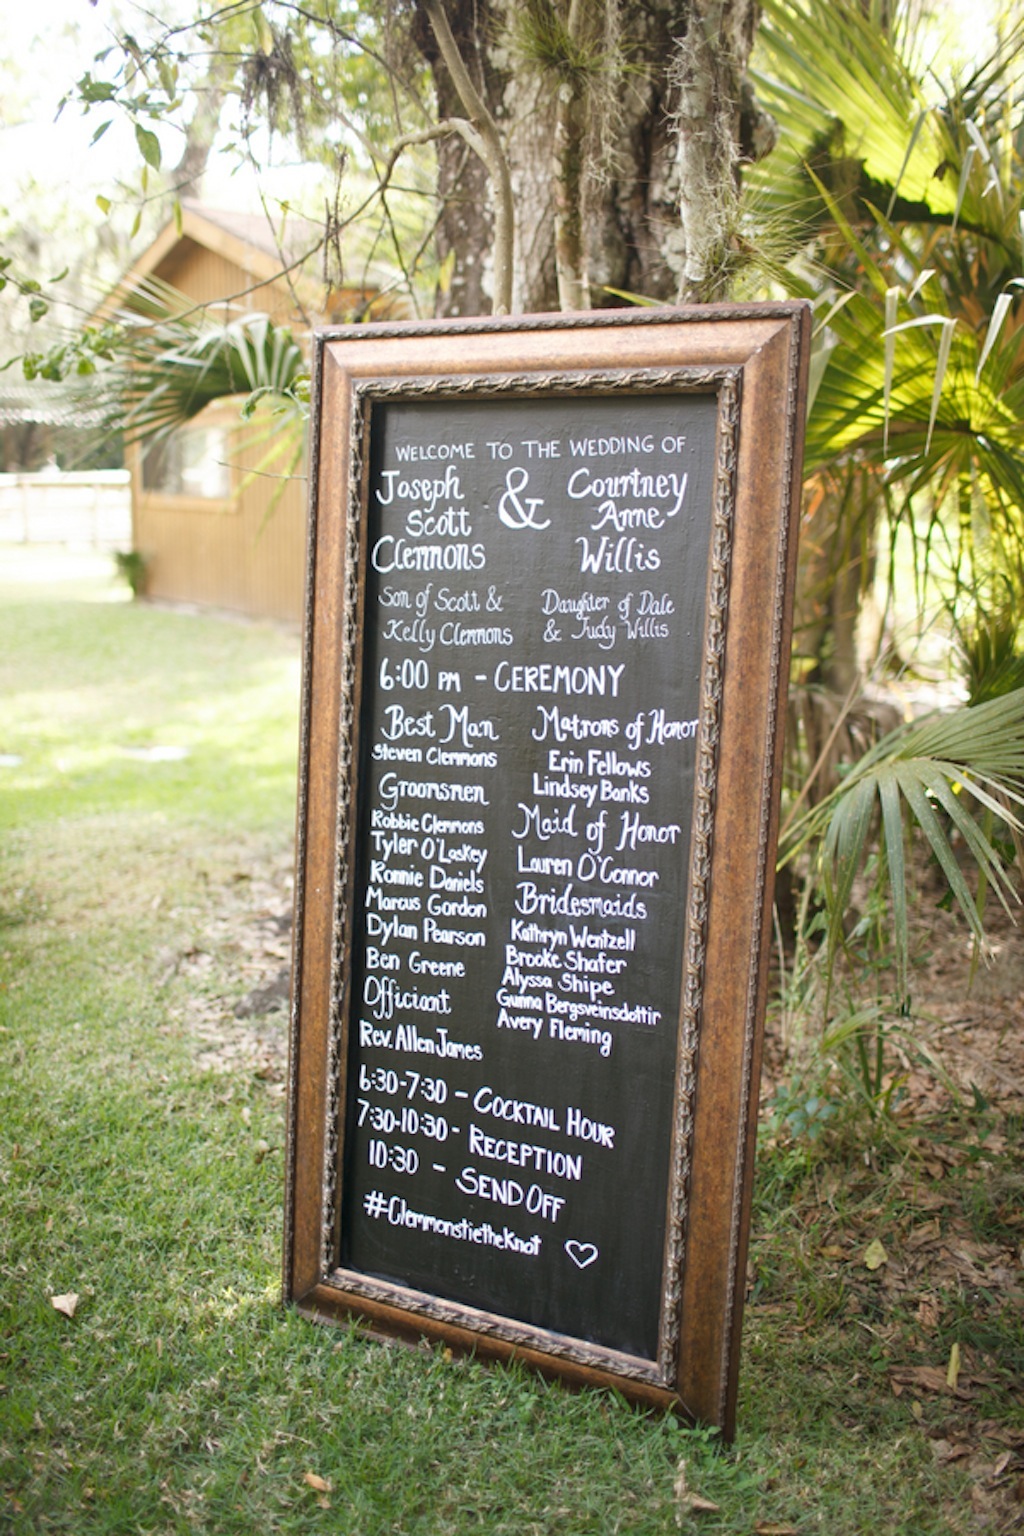 WELCOME TO THE WEDDING OF
Joseph & Courtney
Scott Anne
Clemmons Willis
Son of Scott & Daughter of Dale
Kelly Clemmons & Judy Willis
6:00 PM - CEREMONY
Best Man
Steven Clemmons
Groomsmen
Robbie Clemmons
Tyler O'Laskey
Ronnie Daniels
Marcus Gordon
Dylan Pearson
Ben Greene
Officiant
Rev. Allen James
Matrons of Honor
Erin Fellows
Lindsey Banks
Maid of Honor
Lauren O'Connor
Bridesmaids
Kathryn Wentzell
Brooke Shafer
Alyssa Shipe
Gunna Bergsveinsdottir
Avery Fleming
6:30-7:30 - COCKTAIL HOUR
7:30-10:30 - RECEPTION
10:30 - SEND OFF
#ClemmonstietheKnot ♡